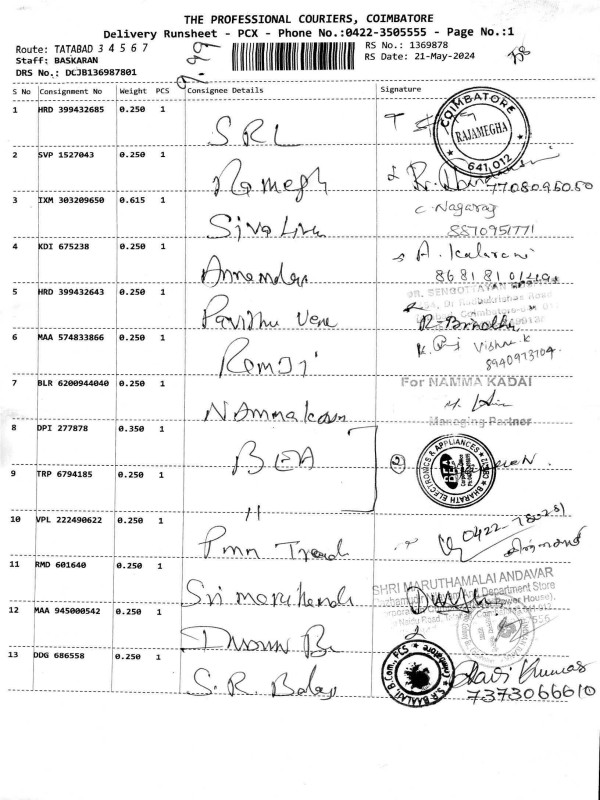 THE PROFESSIONAL COURIERS, COIMBATORE
Delivery Runsheet - PCX - Phone No.:0422-3505555 - Page No.:1
Route: TATABAD 3 4 5 6 7
RS No.: 1369878
Staff: BASKARAN
RS Date: 21-May-2024
DRS No.: DCJB136987801
S No Consignment No Weight PCS Consignee Details Signature
1 HRD 399432685 0.250 1 SRL
COIMBATORE RAJAMEGHA 641 012
2 SVP 1527043 0.250 1 Ramegh
7708095050
3 IXM 303209650 0.615 1 Siva
C. Nagaraj
8870951771
4 KDI 675238 0.250 1
A. Kalarani
5 HRD 399432643 0.250 1 Pavithu
DR. SENGOTTAVAN
6 MAA 574833866 0.250 1 Remji
Vishnu.K
8940973704
7 BLR 6200944040 0.250 1 NAmma
For NAMMA KADAI
Managing Partner
8 DPI 277878 0.350 1 BEA
BHARATH ELECTRONICS & APPLIANCES
BEA
9 TRP 6794185 0.250 1 "
10 VPL 222490622 0.250 1 Pmn Trend
0422-
11 RMD 601640 0.250 1 Sri
SHRI MARUTHAMALAI ANDAVAR
Department Store
Power House),
12 MAA 945000542 0.250 1
13 DDG 686558 0.250 1 S.R. Balaji
S.R. BAALAJI, B.Com., FCS
Ravi Kumar
7373066610